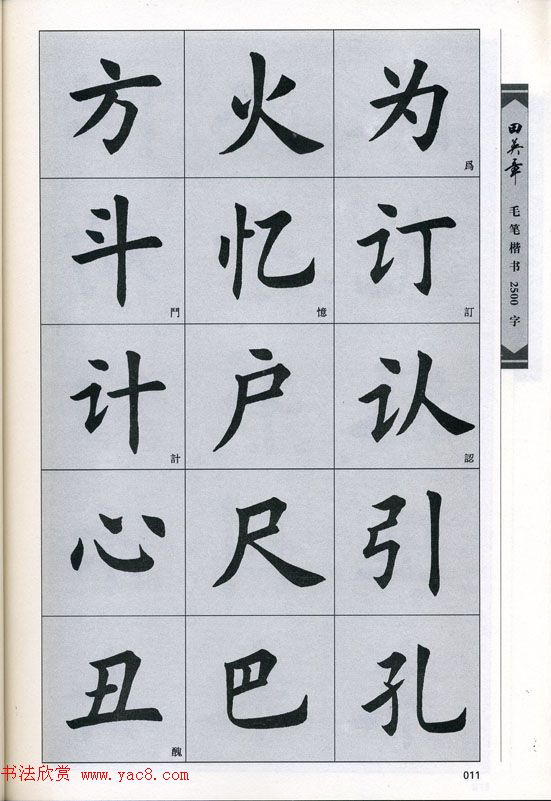 为 火 方
爲
订 忆 斗
訂 憶 鬥
认 户 计
認 計
引 尺 心
孔 巴 丑
醜
田英章
毛笔楷书 2500 字
011
书法欣赏 www.yac8.com